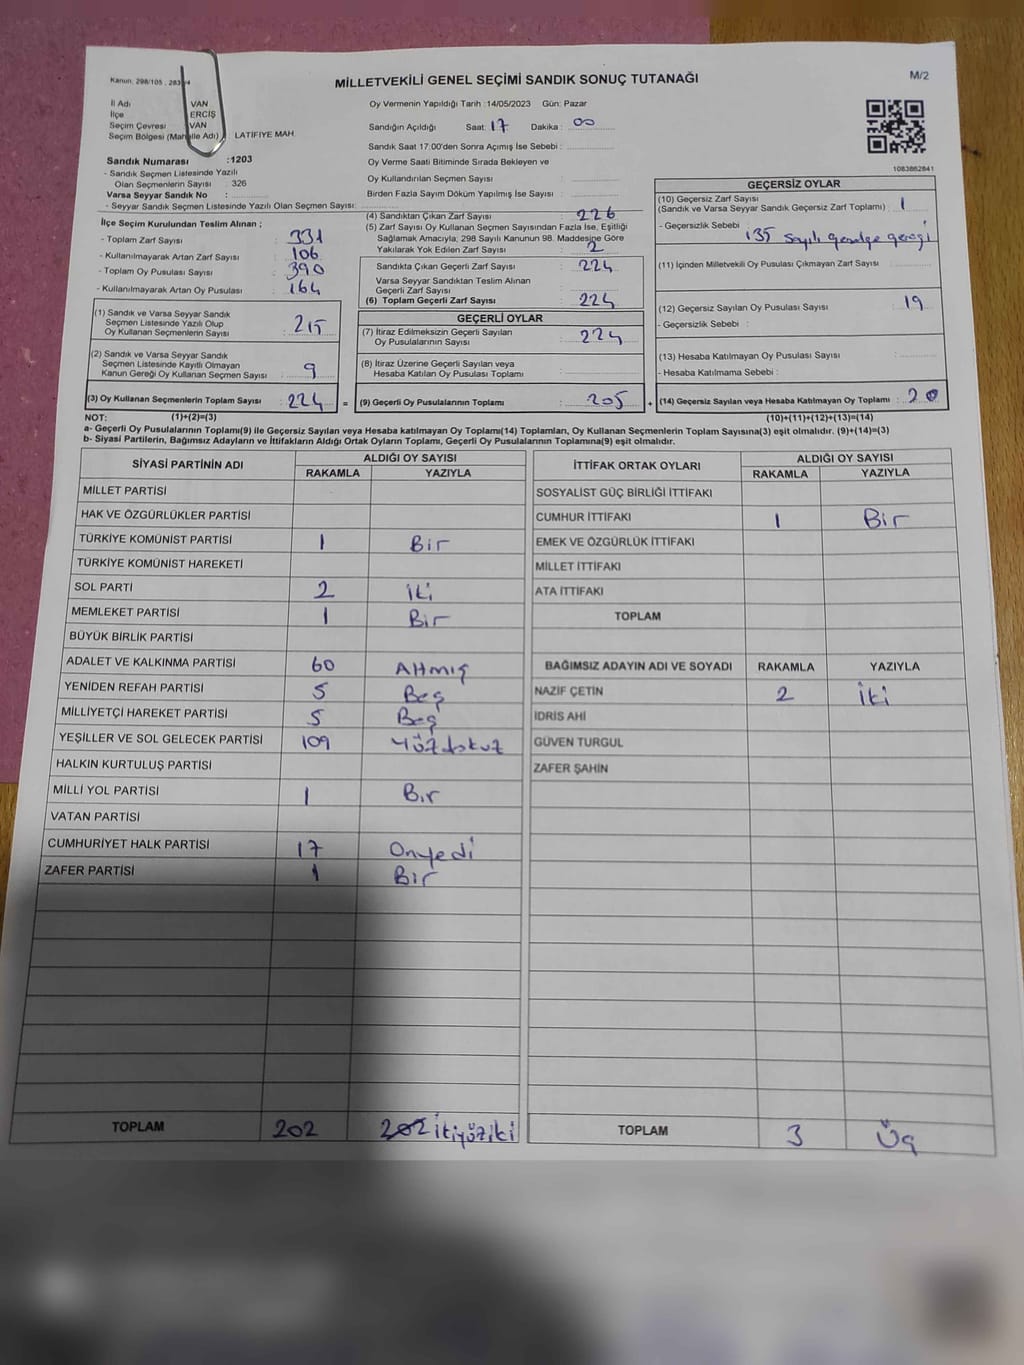 Kanun. 298/105 , 283
MİLLETVEKİLİ GENEL SEÇİMİ SANDIK SONUÇ TUTANAĞI
M/2
İl Adı VAN
İlçe ERCİŞ
Seçim Çevresi VAN
Seçim Bölgesi (Mahalle Adı) LATİFİYE MAH.
Sandık Numarası :1203
- Sandık Seçmen Listesinde Yazılı
Olan Seçmenlerin Sayısı : 326
Varsa Seyyar Sandık No :
- Seyyar Sandık Seçmen Listesinde Yazılı Olan Seçmen Sayısı:
Oy Vermenin Yapıldığı Tarih :14/05/2023 Gün: Pazar
Sandığın Açıldığı Saat: 17 Dakika : 00
Sandık Saat 17:00'den Sonra Açımış İse Sebebi :
Oy Verme Saati Bitiminde Sırada Bekleyen ve
Oy Kullandırılan Seçmen Sayısı :
Birden Fazla Sayım Döküm Yapılmış İse Sayısı :
1083862841
İlçe Seçim Kurulundan Teslim Alınan ;
- Toplam Zarf Sayısı : 331
- Kullanılmayarak Artan Zarf Sayısı : 106
- Toplam Oy Pusulası Sayısı : 390
- Kullanılmayarak Artan Oy Pusulası : 164
(1) Sandık ve Varsa Seyyar Sandık
Seçmen Listesinde Yazılı Olup
Oy Kullanan Seçmenlerin Sayısı : 215
(2) Sandık ve Varsa Seyyar Sandık
Seçmen Listesinde Kayıtlı Olmayan
Kanun Gereği Oy Kullanan Seçmen Sayısı : 9
(3) Oy Kullanan Seçmenlerin Toplam Sayısı : 224 =
(4) Sandıktan Çıkan Zarf Sayısı : 226
(5) Zarf Sayısı Oy Kullanan Seçmen Sayısından Fazla İse, Eşitliği
Sağlamak Amacıyla; 298 Sayılı Kanunun 98. Maddesine Göre
Yakılarak Yok Edilen Zarf Sayısı : 2
Sandıkta Çıkan Geçerli Zarf Sayısı : 224
Varsa Seyyar Sandıktan Teslim Alınan
Geçerli Zarf Sayısı :
(6) Toplam Geçerli Zarf Sayısı : 224
GEÇERLİ OYLAR
(7) İtiraz Edilmeksizin Geçerli Sayılan
Oy Pusulalarının Sayısı : 224
(8) İtiraz Üzerine Geçerli Sayılan veya
Hesaba Katılan Oy Pusulası Toplamı :
(9) Geçerli Oy Pusulalarının Toplamı : 205 +
GEÇERSİZ OYLAR
(10) Geçersiz Zarf Sayısı
(Sandık ve Varsa Seyyar Sandık Geçersiz Zarf Toplamı) : 1
- Geçersizlik Sebebi : 135 sayılı genelge gereği
(11) İçinden Milletvekili Oy Pusulası Çıkmayan Zarf Sayısı :
(12) Geçersiz Sayılan Oy Pusulası Sayısı : 19
- Geçersizlik Sebebi :
(13) Hesaba Katılmayan Oy Pusulası Sayısı :
- Hesaba Katılmama Sebebi :
(14) Geçersiz Sayılan veya Hesaba Katılmayan Oy Toplamı : 20
NOT: (1)+(2)=(3) (10)+(11)+(12)+(13)=(14)
a- Geçerli Oy Pusulalarının Toplamı(9) ile Geçersiz Sayılan veya Hesaba katılmayan Oy Toplamı(14) Toplamları, Oy Kullanan Seçmenlerin Toplam Sayısına(3) eşit olmalıdır. (9)+(14)=(3)
b- Siyasi Partilerin, Bağımsız Adayların ve İttifakların Aldığı Ortak Oyların Toplamı, Geçerli Oy Pusulalarının Toplamına(9) eşit olmalıdır.
SİYASİ PARTİNİN ADI ALDIĞI OY SAYISI
RAKAMLA YAZIYLA
MİLLET PARTİSİ
HAK VE ÖZGÜRLÜKLER PARTİSİ
TÜRKİYE KOMÜNİST PARTİSİ 1 Bir
TÜRKİYE KOMÜNİST HAREKETİ
SOL PARTİ 2 İki
MEMLEKET PARTİSİ 1 Bir
BÜYÜK BİRLİK PARTİSİ
ADALET VE KALKINMA PARTİSİ 60 Altmış
YENİDEN REFAH PARTİSİ 5 Beş
MİLLİYETÇİ HAREKET PARTİSİ 5 Beş
YEŞİLLER VE SOL GELECEK PARTİSİ 109 Yüzdokuz
HALKIN KURTULUŞ PARTİSİ
MİLLİ YOL PARTİSİ 1 Bir
VATAN PARTİSİ
CUMHURİYET HALK PARTİSİ 17 Onyedi
ZAFER PARTİSİ 1 Bir
TOPLAM 202 202 ikiyüziki
İTTİFAK ORTAK OYLARI ALDIĞI OY SAYISI
RAKAMLA YAZIYLA
SOSYALİST GÜÇ BİRLİĞİ İTTİFAKI
CUMHUR İTTİFAKI 1 Bir
EMEK VE ÖZGÜRLÜK İTTİFAKI
MİLLET İTTİFAKI
ATA İTTİFAKI
TOPLAM
BAĞIMSIZ ADAYIN ADI VE SOYADI RAKAMLA YAZIYLA
NAZİF ÇETİN 2 İki
İDRİS AHİ
GÜVEN TURGUL
ZAFER ŞAHİN
TOPLAM 3 Üç